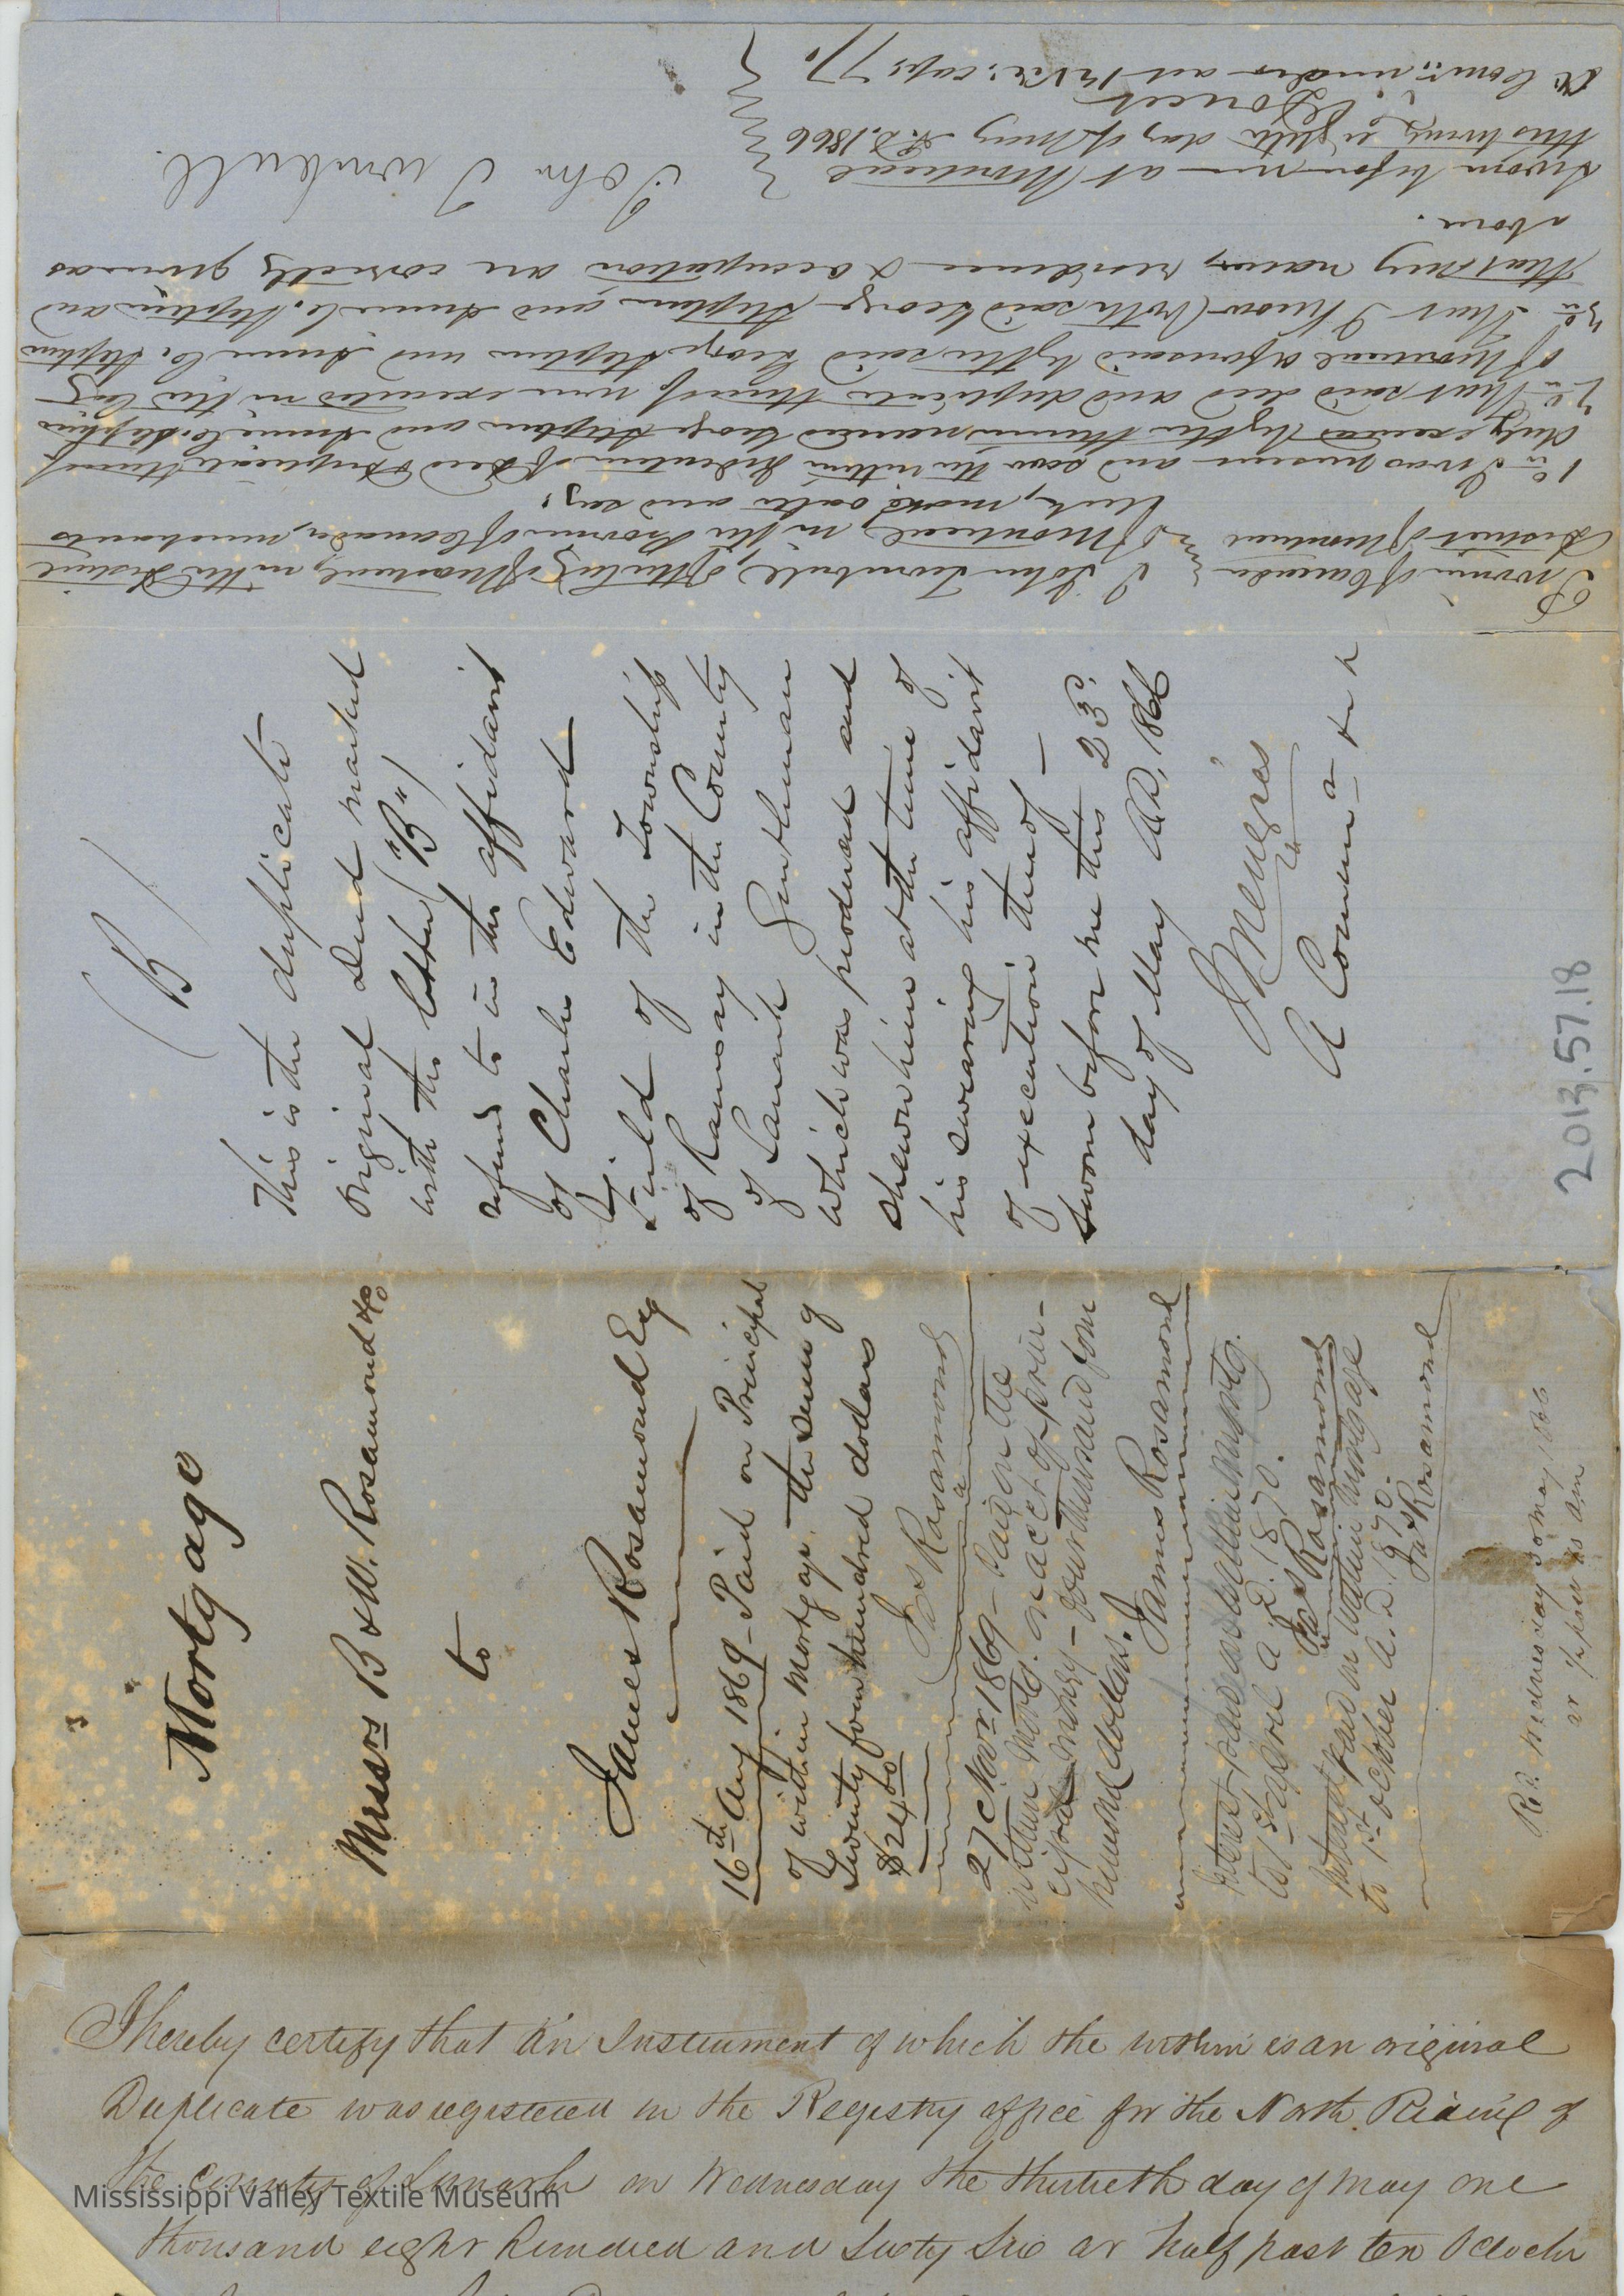 Province of Canada
District of Montreal
I John Turnbull, of the City of Montreal, in the District
of Montreal, in the Province of Canada, merchants
Clerk, make oath and say:
1st I was present and saw the within Indenture of Deed & duplicate thereof
duly executed by the therein named George Stephen and Annie C. Stephen
2nd That said deed and duplicate thereof were executed in the City
of Montreal aforesaid by the said George Stephen and Annie C. Stephen
3rd That I know both said George Stephen and Annie C. Stephen and
That my name, residence & occupation are correctly given as
above.
Sworn before me at Montreal
this twenty eighth day of May A.D. 1866
John Turnbull.
(B)
This is the duplicate
original Deed marked
with the letter ("B")
referred to in the affidavit
of Charles Edward
Field of the Township
of Ramsay in the County
of Lanark Gentleman
which was produced and
shewn him at the time of
his swearing his affidavit
of execution thereof —
Sworn before me this 23d.
day of May AD, 1866
J Menzies
2013.57.18
Mortgage
Messrs B & W. Rosamond &Co
to
James Rosamond Esq
16th Aug 1869 — Paid on Principal
of within Mortgage. the sum of
twenty four hundred dollars
$2400
Jas Rosamond
27 Novr 1869 — Paid on the
within Mortg. on acct of prin-
cipal money — four thousand four
hundred dollars.
James Rosamond
Interest paid on within Mortg.
to 1st April a.D. 1870.
Jas Rosamond
Interest paid on within Mortgage
to 1st October A.D. 1870.
Jas Rosamond
Red. Wednesday 30 May, 1866
at ½ past 10 Am
I hereby certify that an Instrument of which the within is an original
Duplicate was registered in the Registry office for the North Riding of
the County of Lanark on Wednesday the thirtieth day of May one
thousand eight hundred and Sixty Six at half past ten Oclock
Mississippi Valley Textile Museum